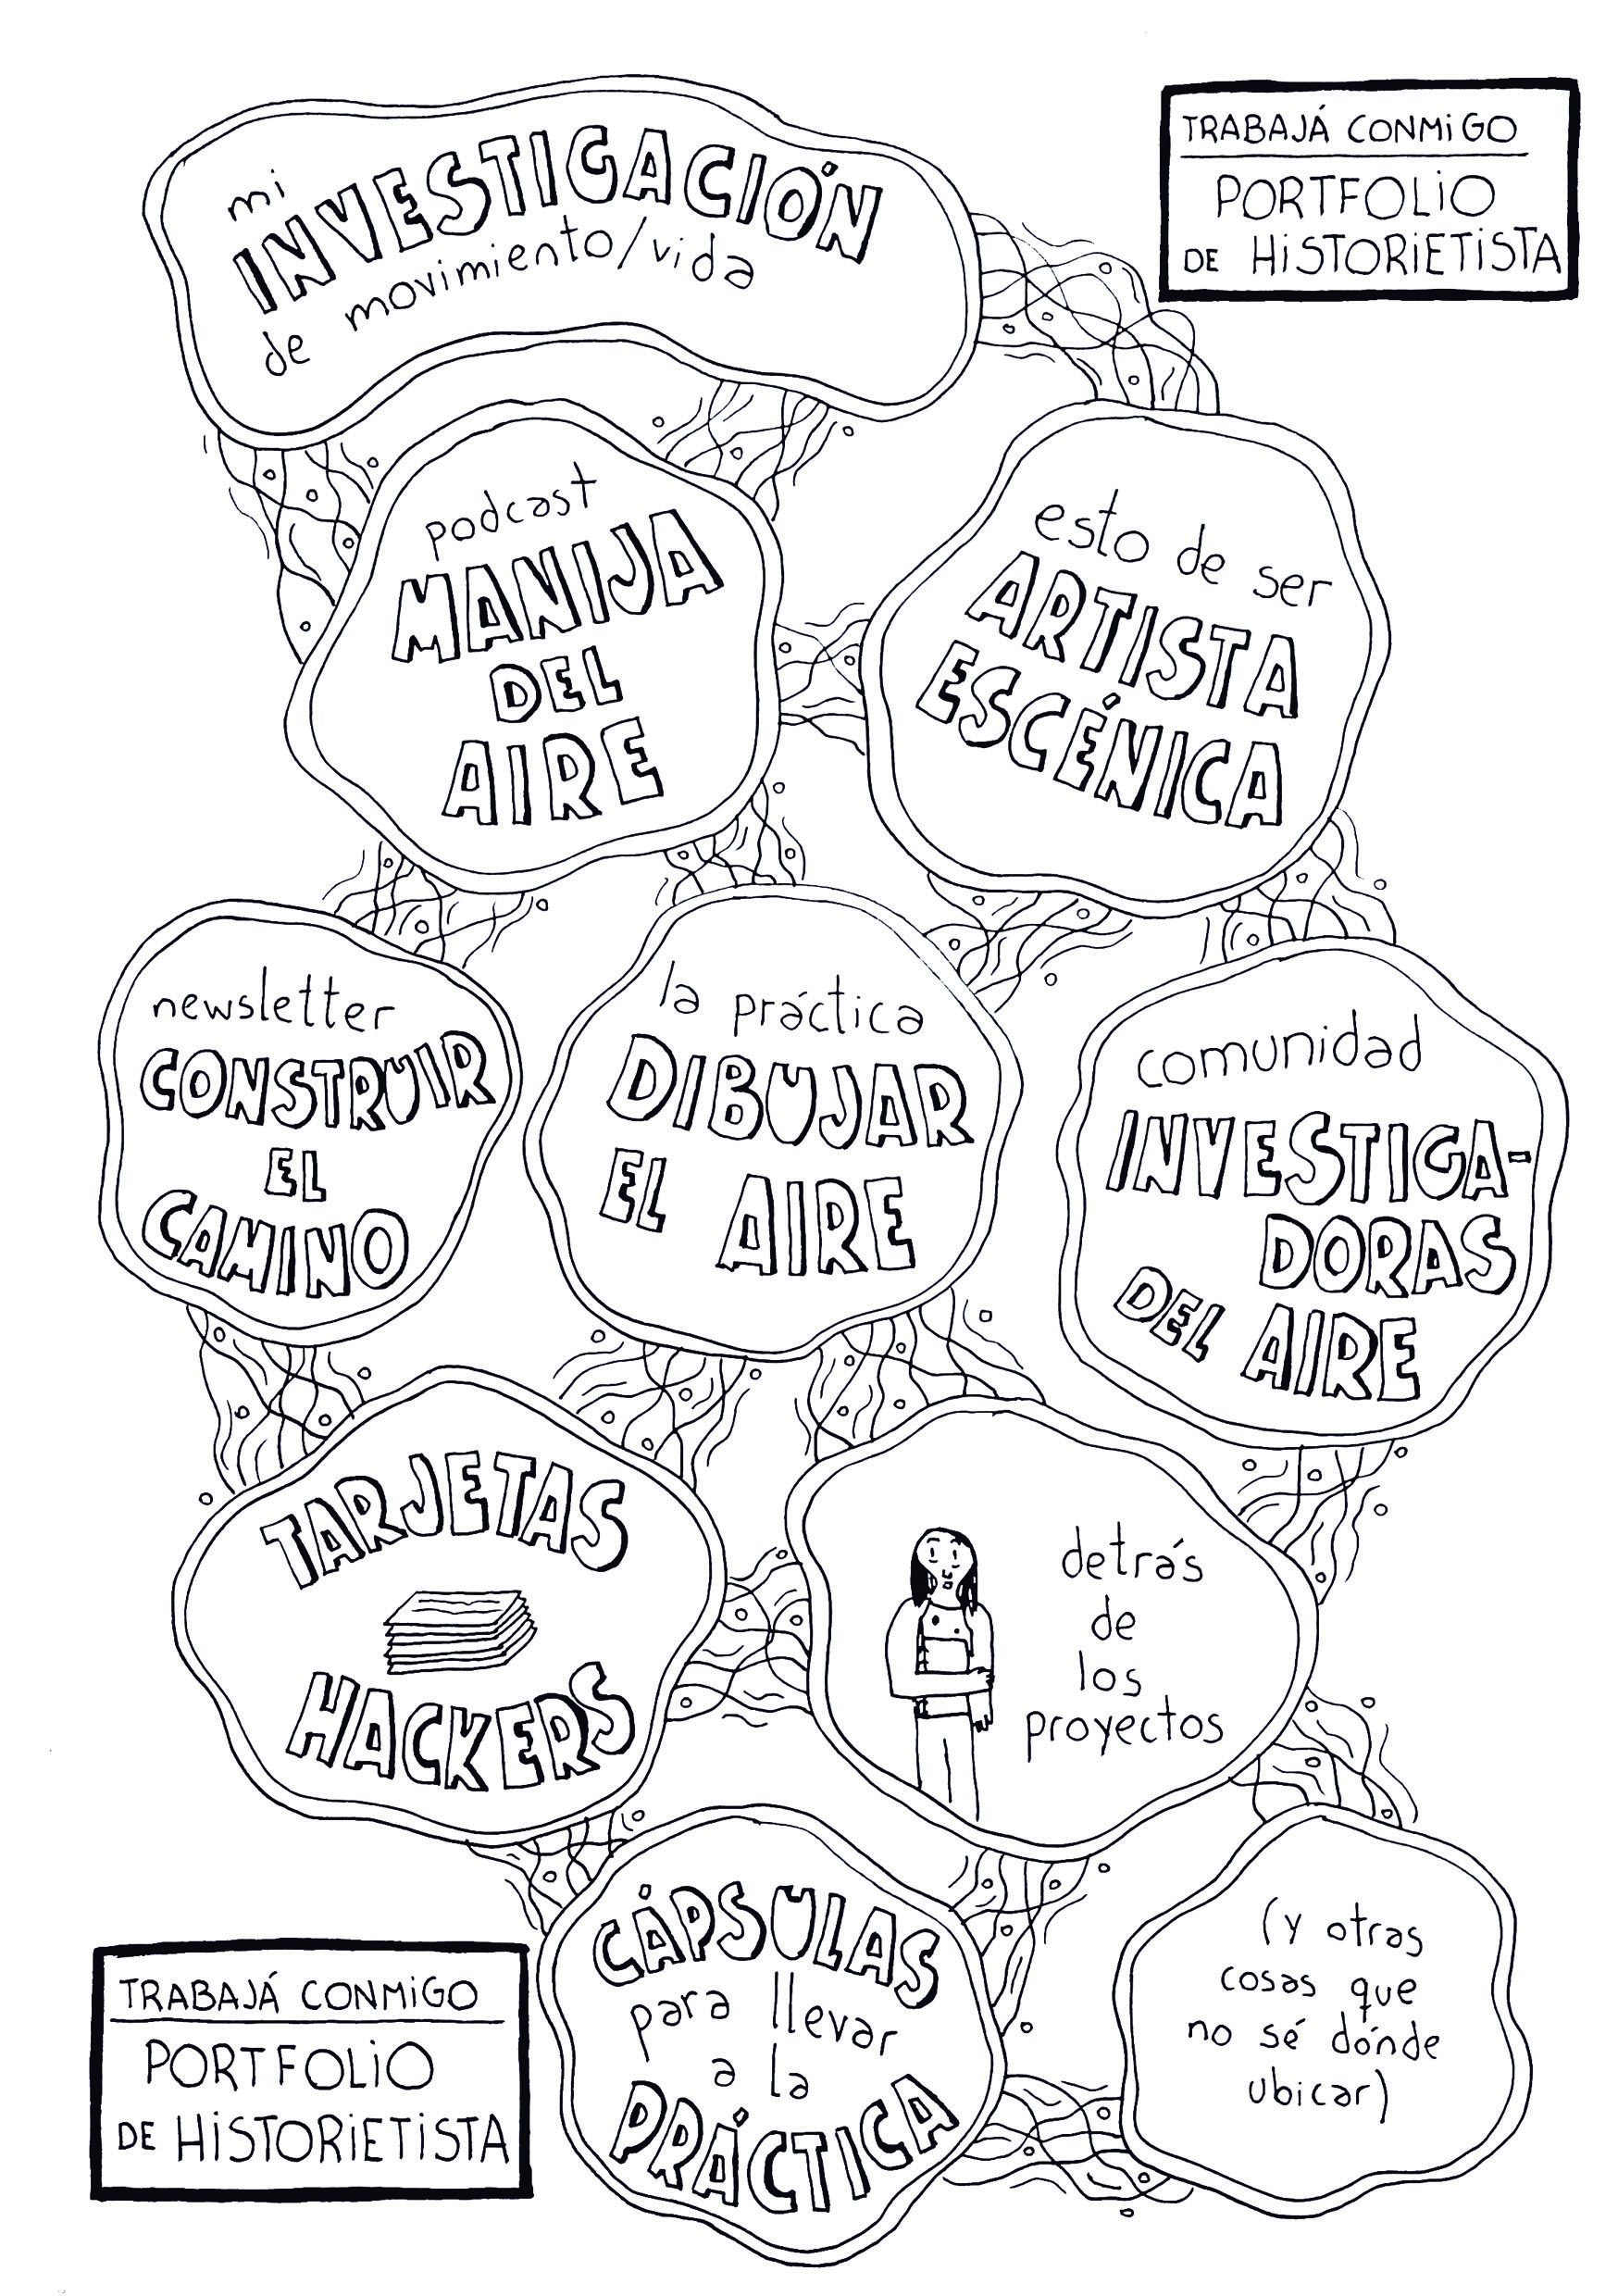 mi
INVESTIGACIÓN
de movimiento/vida
TRABAJÁ CONMiGO
PORTFOLiO
DE HiSTORiETiSTA
podcast
MANIJA
DEL
AIRE
esto de ser
ARTISTA
ESCÉNICA
newsletter
CONSTRUIR
EL
CAMINO
la práctica
DIBUJAR
EL AIRE
comunidad
INVESTIGA-
DORAS
DEL AIRE
TARJETAS
HACKERS
detrás
de
los
proyectos
CÁPSULAS
para llevar
a la
PRÁCTICA
(y otras
cosas que
no sé dónde
ubicar)
TRABAJÁ CONMiGO
PORTFOLiO
DE HiSTORiETiSTA